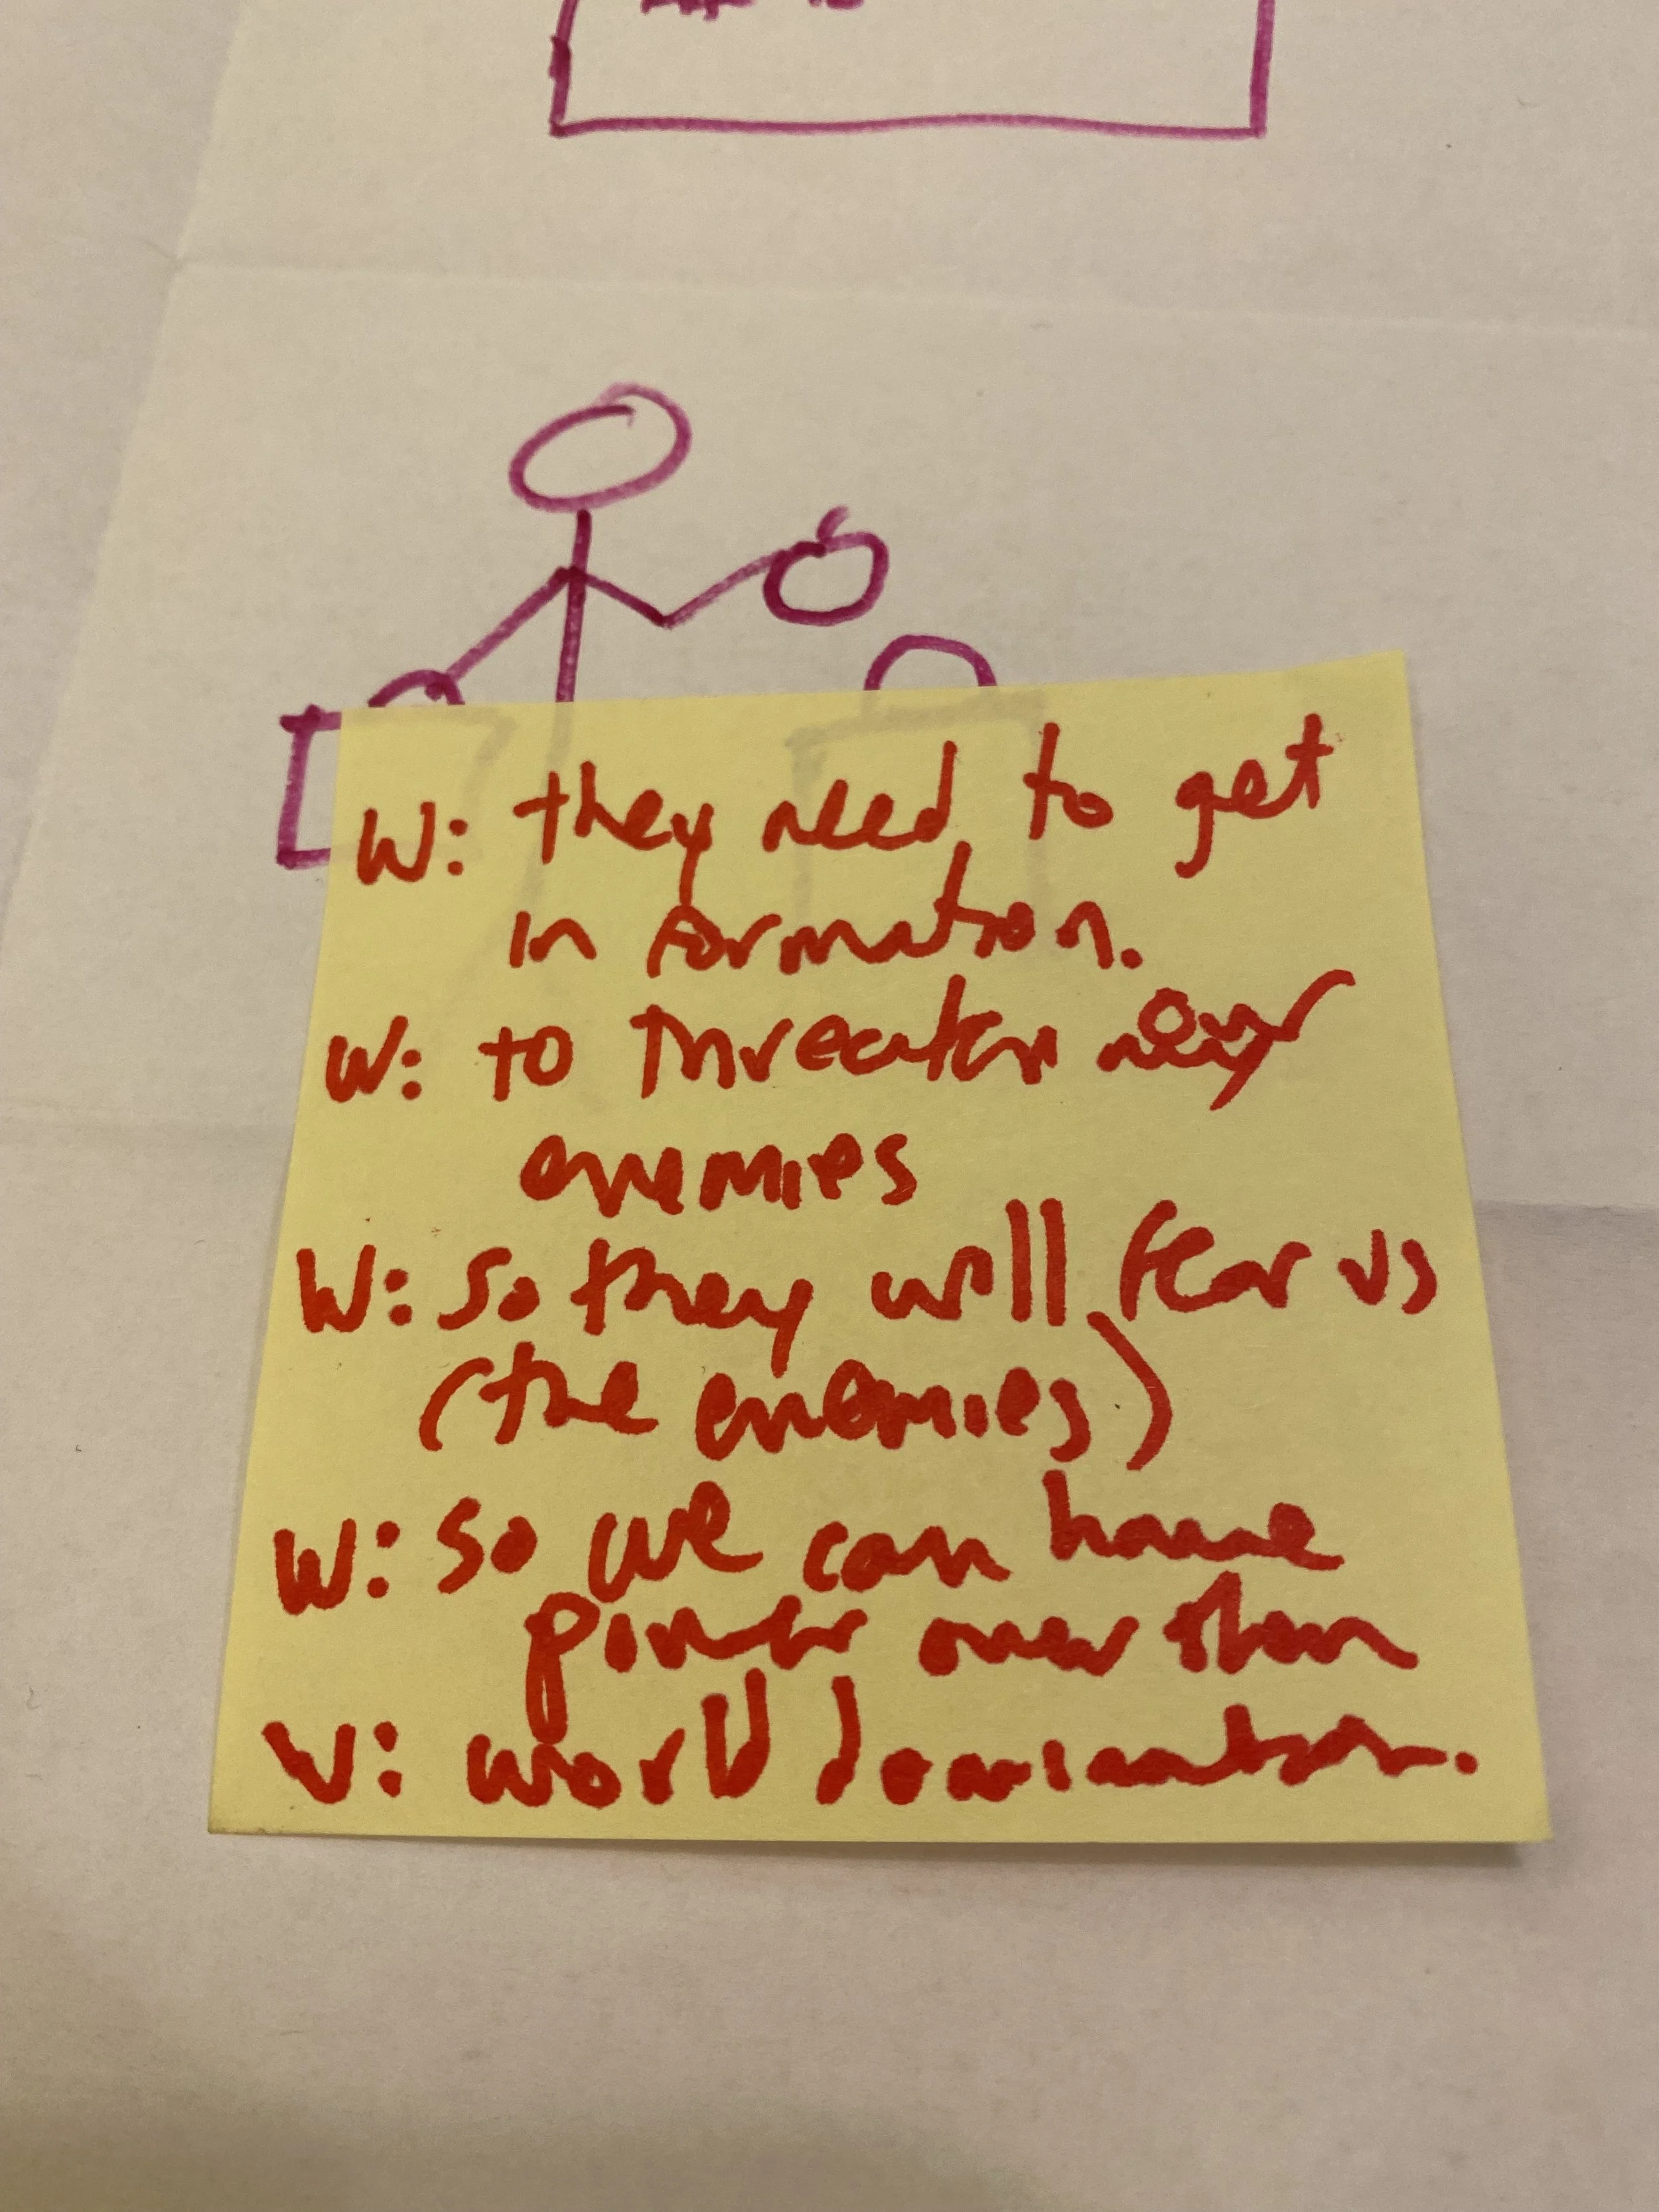 W: they need to get
in formation.
W: to threaten our
enemies
W: so they will fear us
(the enemies)
W: so we can have
power over them
W: world domination.